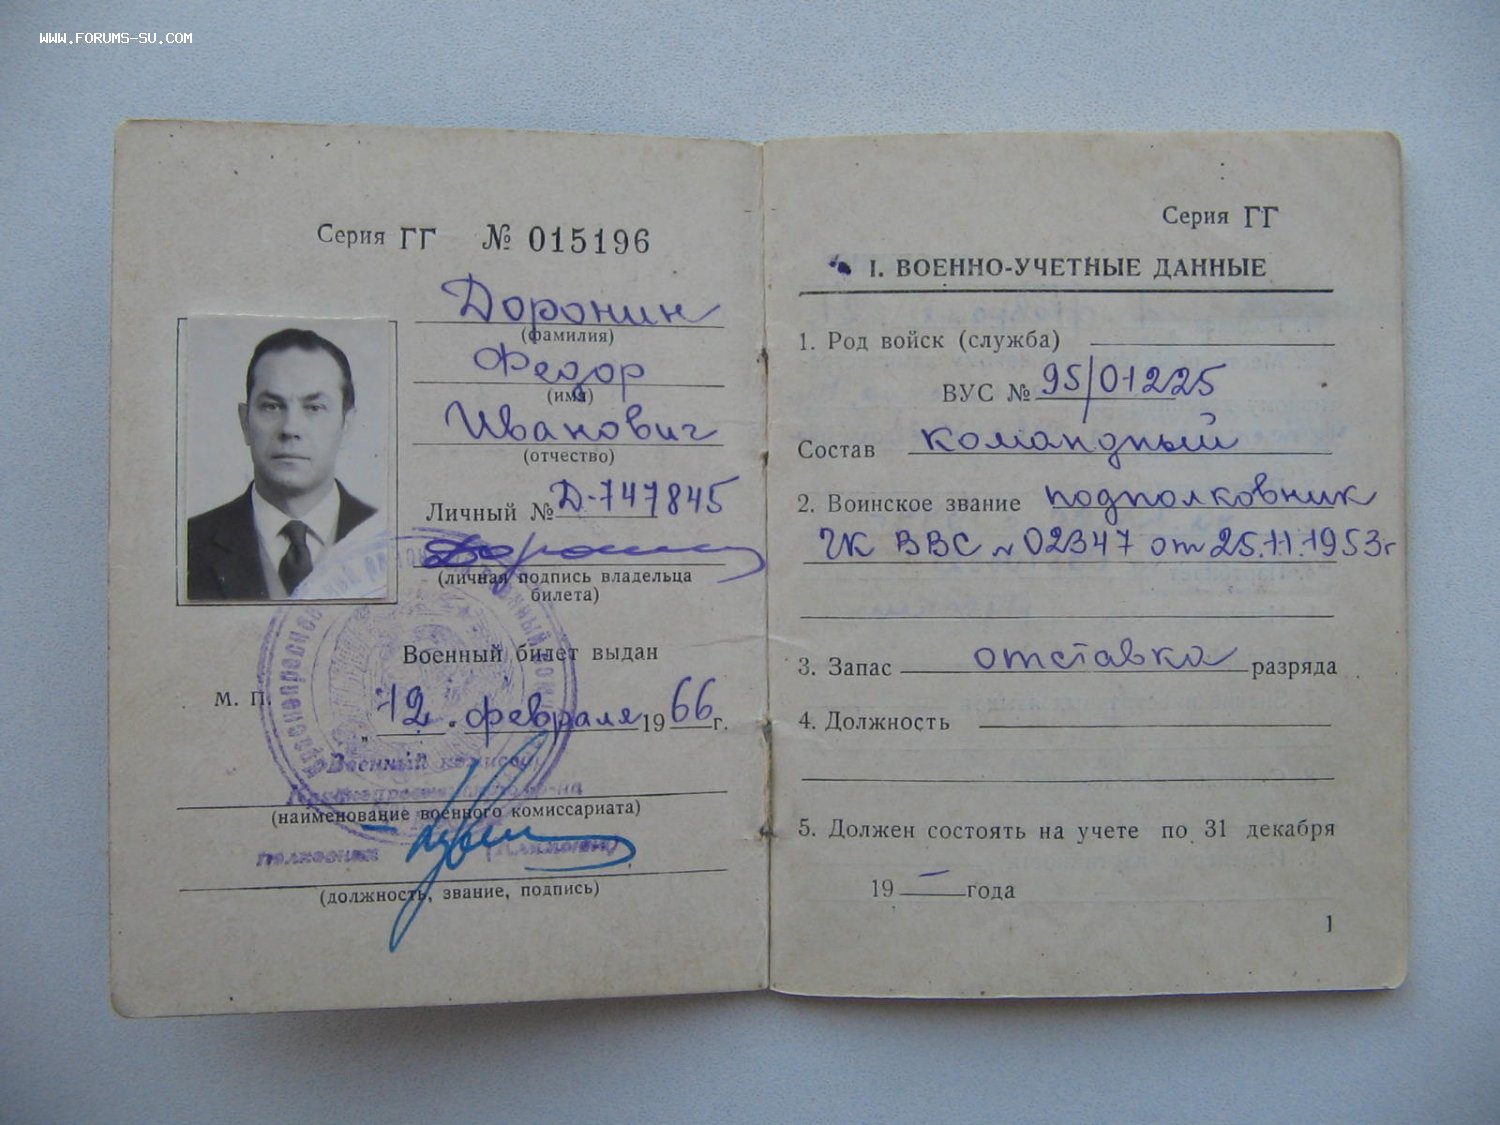 WWW.FORUMS-SU.COM
Серия ГГ № 015196
Доронин
(фамилия)
Федор
(имя)
Иванович
(отчество)
Личный № Д-747845
(личная подпись владельца
билета)
Военный билет выдан
М. П.
„12" февраля 1966 г.
Военный комиссар
(наименование военного комиссариата)
полковник
(должность, звание, подпись)
Серия ГГ
I. ВОЕННО-УЧЕТНЫЕ ДАННЫЕ
1. Род войск (служба)
ВУС № 95/01225
Состав командный
2. Воинское звание подполковник
ГК ВВС № 02347 от 25.11.1953г
3. Запас отставка разряда
4. Должность
5. Должен состоять на учете по 31 декабря
19 — года
1